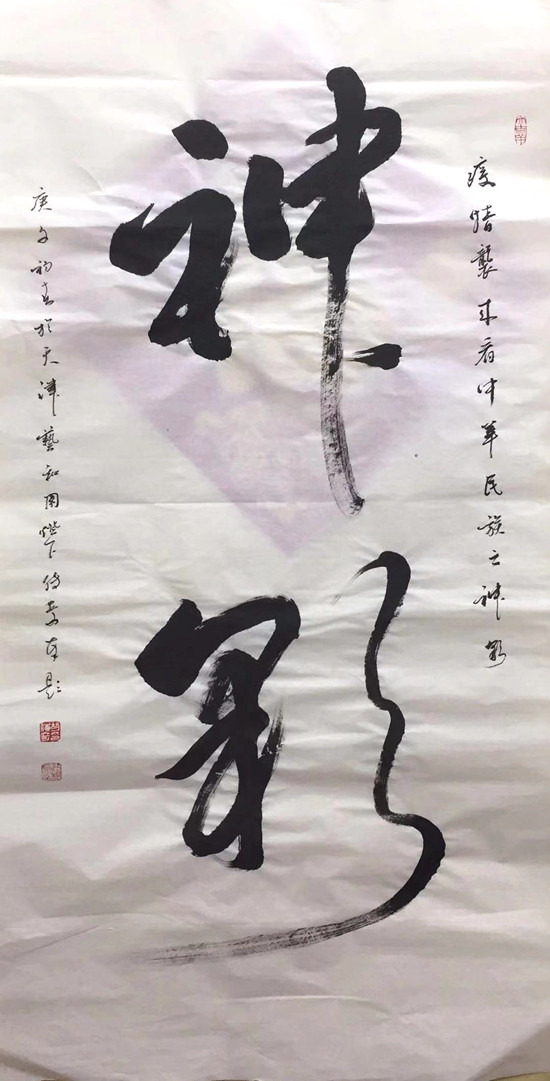 疫情襲来看中華民族之神彩
神彩
庚子初春於天津藝和園燈下題